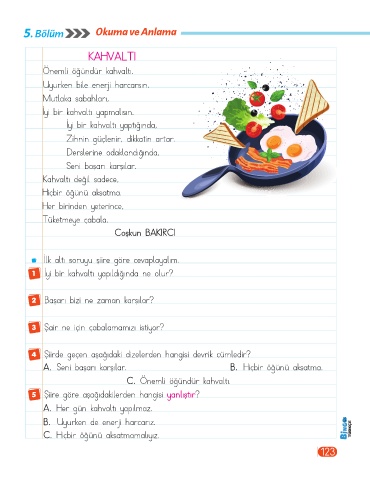 5. Bölüm
Okuma ve Anlama
KAHVALTI
Önemli öğündür kahvaltı,
Uyurken bile enerji harcarsın.
Mutlaka sabahları,
İyi bir kahvaltı yapmalısın.
İyi bir kahvaltı yaptığında,
Zihnin güçlenir, dikkatin artar.
Derslerine odaklandığında,
Seni başarı karşılar.
Kahvaltı değil sadece,
Hiçbir öğünü aksatma.
Her birinden yeterince,
Tüketmeye çabala.
Coşkun BAKIRCI
İlk altı soruyu şiire göre cevaplayalım.
1 İyi bir kahvaltı yapıldığında ne olur?
2 Başarı bizi ne zaman karşılar?
3 Şair ne için çabalamamızı istiyor?
4 Şiirde geçen aşağıdaki dizelerden hangisi devrik cümledir?
A. Seni başarı karşılar. B. Hiçbir öğünü aksatma.
C. Önemli öğündür kahvaltı.
5 Şiire göre aşağıdakilerden hangisi yanlıştır?
A. Her gün kahvaltı yapılmaz.
B. Uyurken de enerji harcarız.
C. Hiçbir öğünü aksatmamalıyız.
123